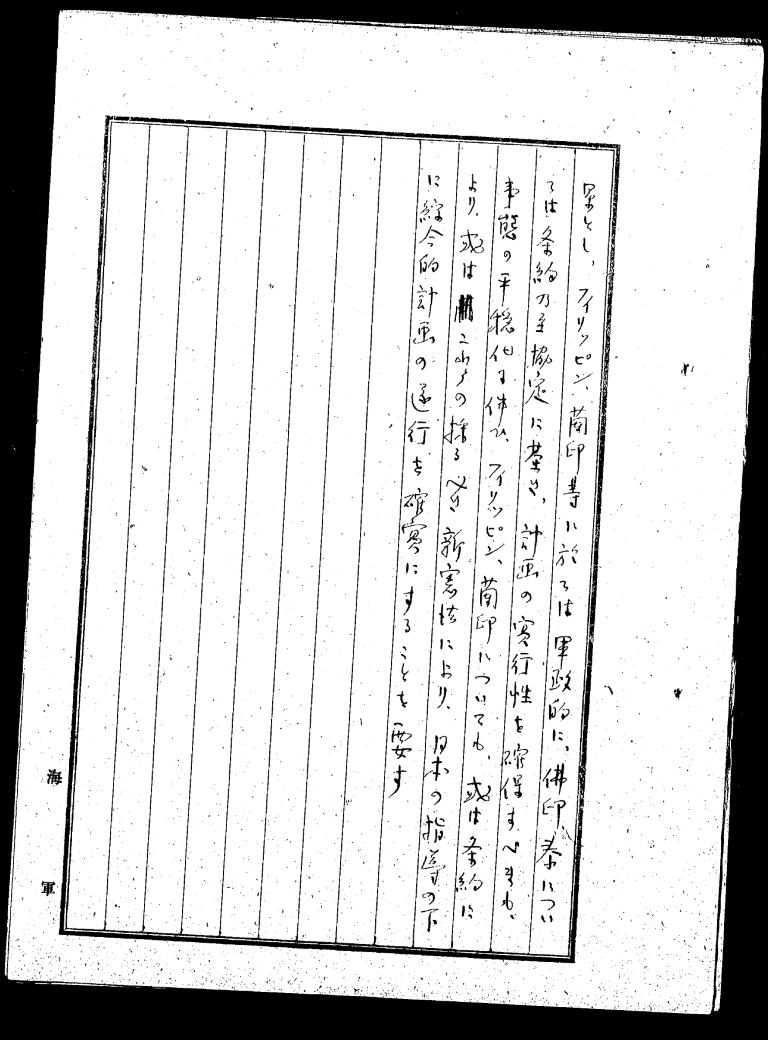 し、フイリッピン、蘭印等に於ては軍政的に、佛印、泰につい
ては条約乃至協定に基き、計画の實行性を確保すべきも、
事態の平穏化に伴ひ、フイリッピン、蘭印についても、或は条約に
より、或はこれらの採るべき新憲法により、日本の指導の下
に綜合的計画の遂行を確實にすることを要す
海軍